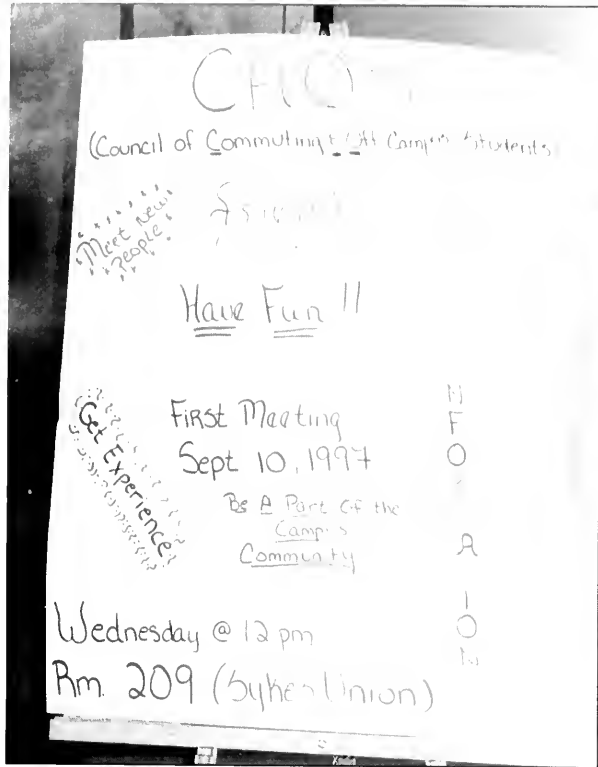 (Council of Commuting & Off Campus Students
Meet New
People
Have Fun !!
Get Experience
First Meeting
Sept 10, 1997
Be A Part Of the
Campus
Community
Wednesday @ 12 pm
Rm. 209 (Sykes Union)